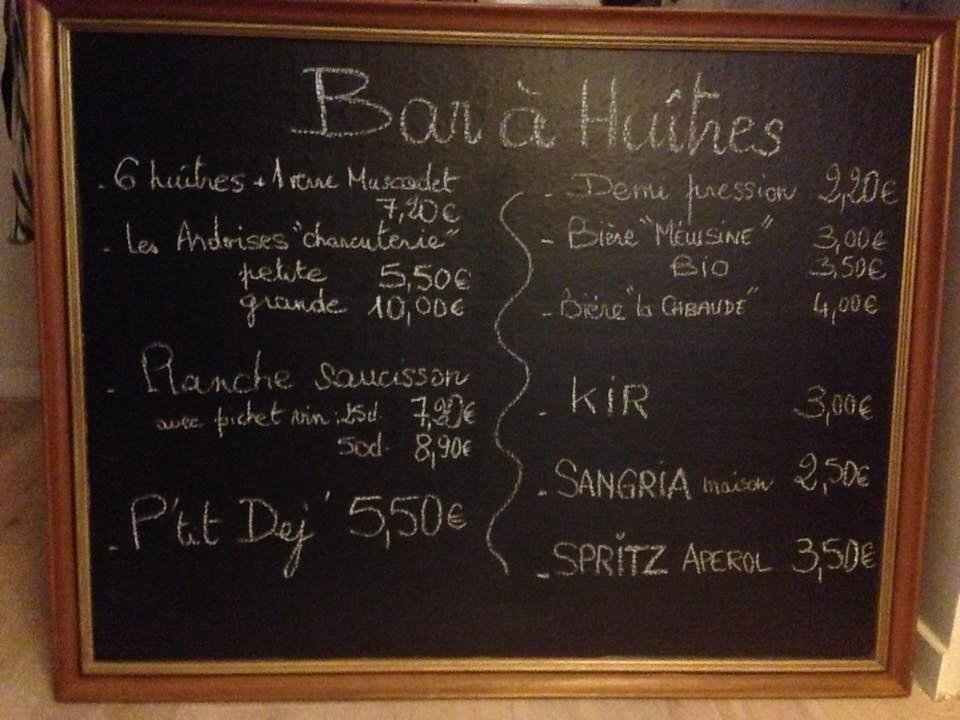 Bar à Huîtres
- 6 huîtres + 1 verre Muscadet
7,20€
- Les Ardoises "charcuterie"
petite 5,50€
grande 10,00€
- Planche saucisson
avec pichet vin: 25cl. 7,20€
50cl. 8,90€
- P'tit Dej' 5,50€
- Demi pression 2,20€
- Bière "MÉLUSINE" 3,00€
BIO 3,50€
- Bière "la CABAUDE" 4,00€
- KIR 3,00€
- SANGRIA maison 2,50€
- SPRITZ APEROL 3,50€